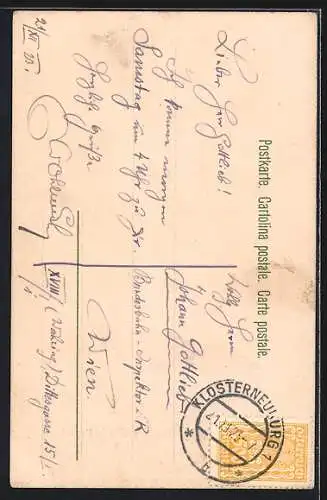 Postkarte. Cartolina postale. Carte postale.
24
XII 23.
Lieber Herr Gottlieb!
Ich komme morgen
Samstag um 4 Uhr zu Ihnen.
Herzliche Grüße
Herrn
Johann Gottlieb
Bundesbahn-Inspektor i. R
Wien.
XVIII/1 (Währing) Dittesgasse 15/I.
KLOSTERNEUBURG 1